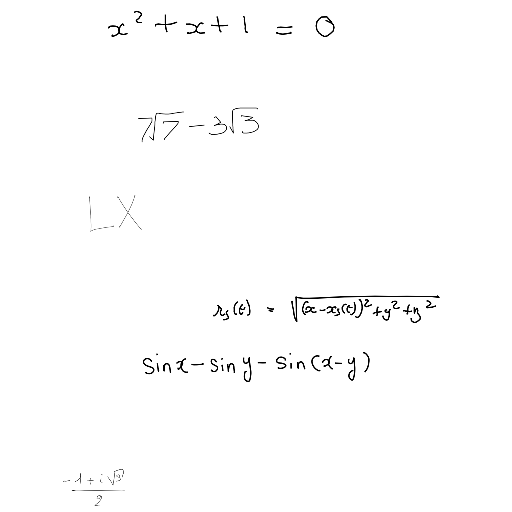 x² + x + 1 = 0
7√7 − 3√3
LX
r_s(t) = √((x − x_s(t))² + y² + z²)
sin x − sin y − sin(x − y)
(−1 + i√3)/2